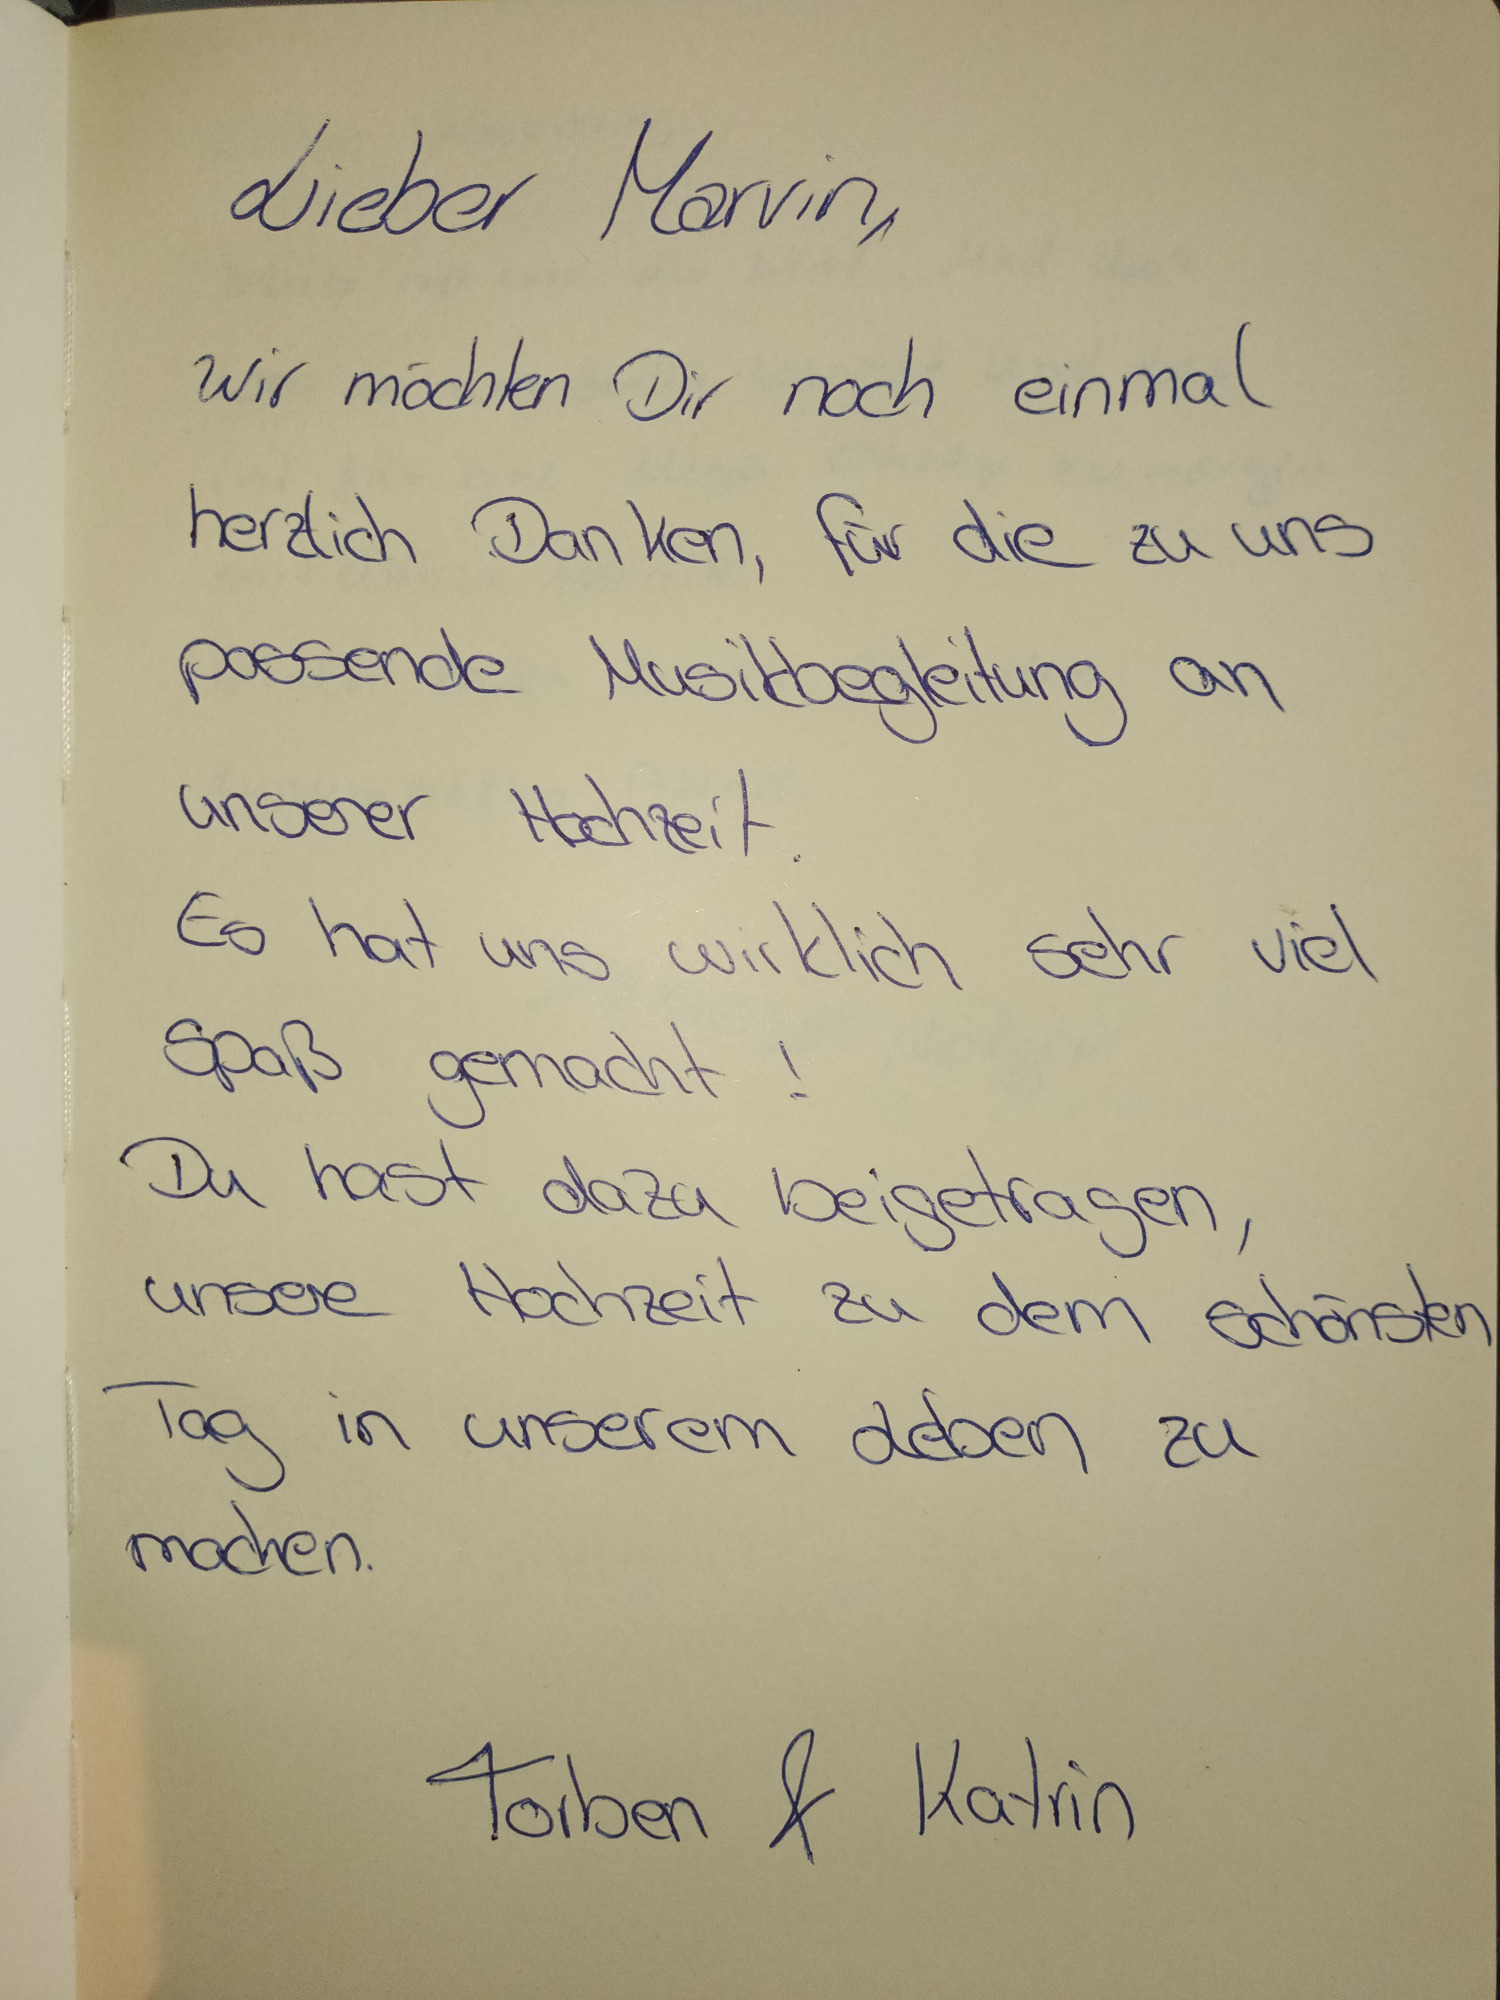 Lieber Marvin,
Wir möchten Dir noch einmal
herzlich Danken, für die zu uns
passende Musikbegleitung an
unserer Hochzeit.
Es hat uns wirklich sehr viel
Spaß gemacht!
Du hast dazu beigetragen,
unsere Hochzeit zu dem schönsten
Tag in unserem Leben zu
machen.
Torben & Katrin